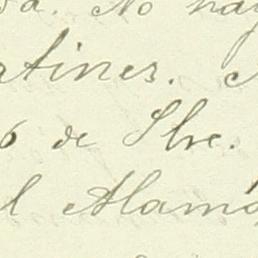 da. No hay
atines.
6 de Sbre.
l Alamo